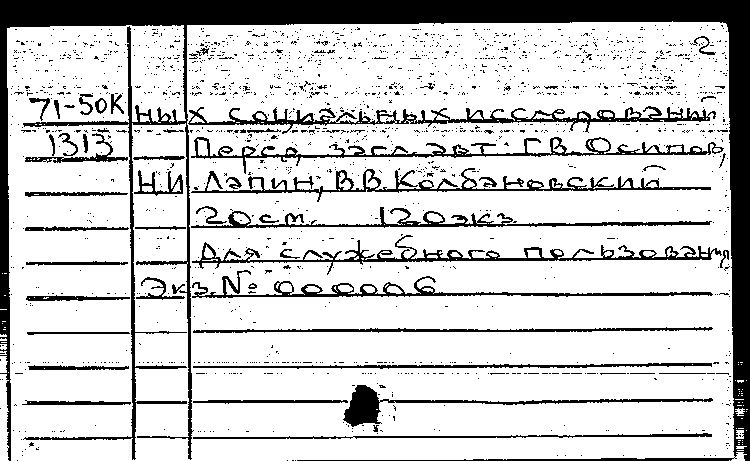 2
71-50К ных социальных исследований
1313 Перед загл. авт: Г.В. Осипов,
Н.И. Лапин, В.В. Колбановский
20 см. 120 экз
Для служебного пользования
Экз. № 000006